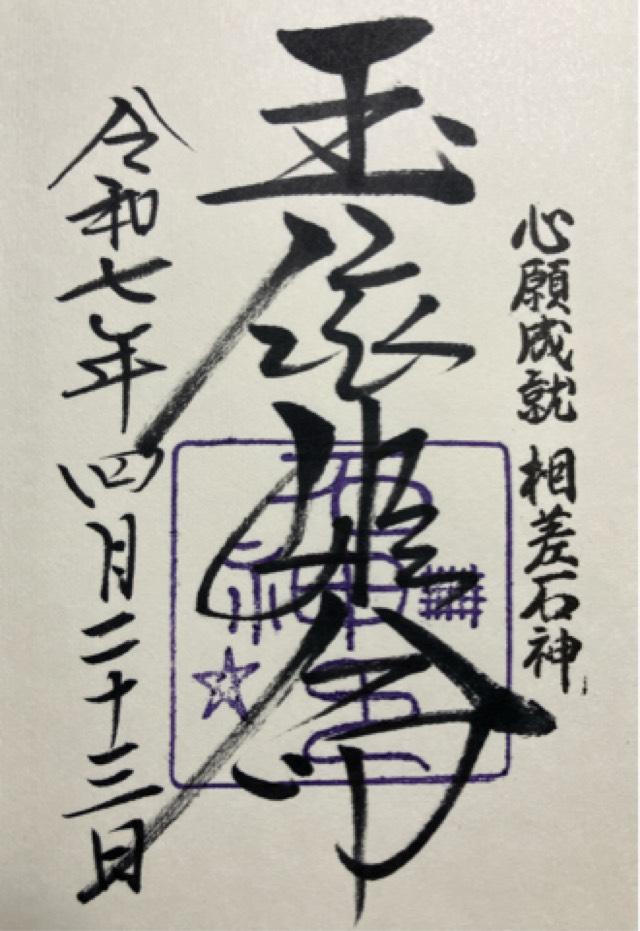 心願成就 相差石神
玉依姫命
令和七年四月二十三日